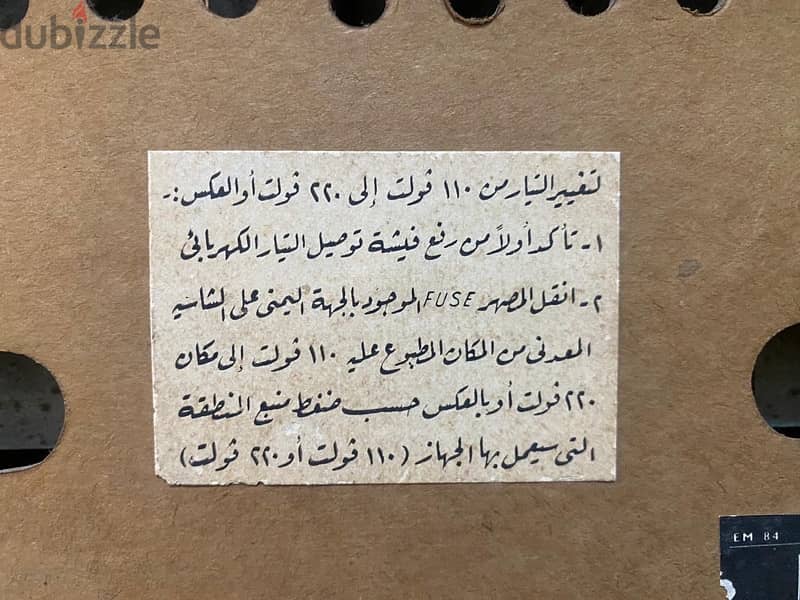 dubizzle
لتغيير التيار من ١١٠ ڤولت إلى ٢٢٠ ڤولت أو العكس :-
١- تأكد أولاً من رفع فيشة توصيل التيار الكهربائى
٢- انقل المصهر FUSE الموجود بالجهة اليمنى على الشاسيه
المعدنى من المكان المطبوع عليه ١١٠ ڤولت إلى مكان
٢٢٠ ڤولت أو بالعكس حسب ضغط منبع المنطقة
التى سيعمل بها الجهاز (١١٠ ڤولت أو ٢٢٠ ڤولت)
EM 84